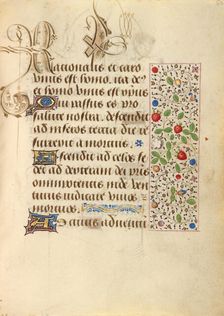 Rationalis et caro
unus est homo, ita de
et homo unus est xpus
Qui passus est pro
salute nostra, descendit
ad inferos tertia die re
surrexit a mortuis.
Ascendit ad celos sedet
ad dexteram dei patris
omnipotentis inde ven
turus iudicare vivos et
mortuos.
Ad cuius adventum